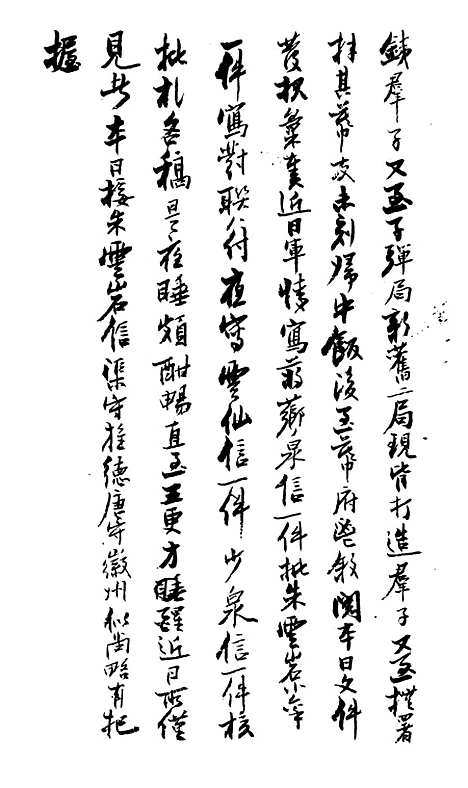 鐵羣子又至子彈局新舊二局現皆打造羣子又至撫署
拜其幕友未刻歸中飯後至幕府鬯敘閱本日文件
發報彙奏近日軍情寫蔣薌泉信一件批朱雲岩小
一件寫對聯八付夜寫雲仙信一件少泉信一件核
批札各稿是夜睡頗酣暢直至五更方睡醒近日所僅
見者本日接朱雲岩信渠守旌德唐守徽州似尚略有把
握